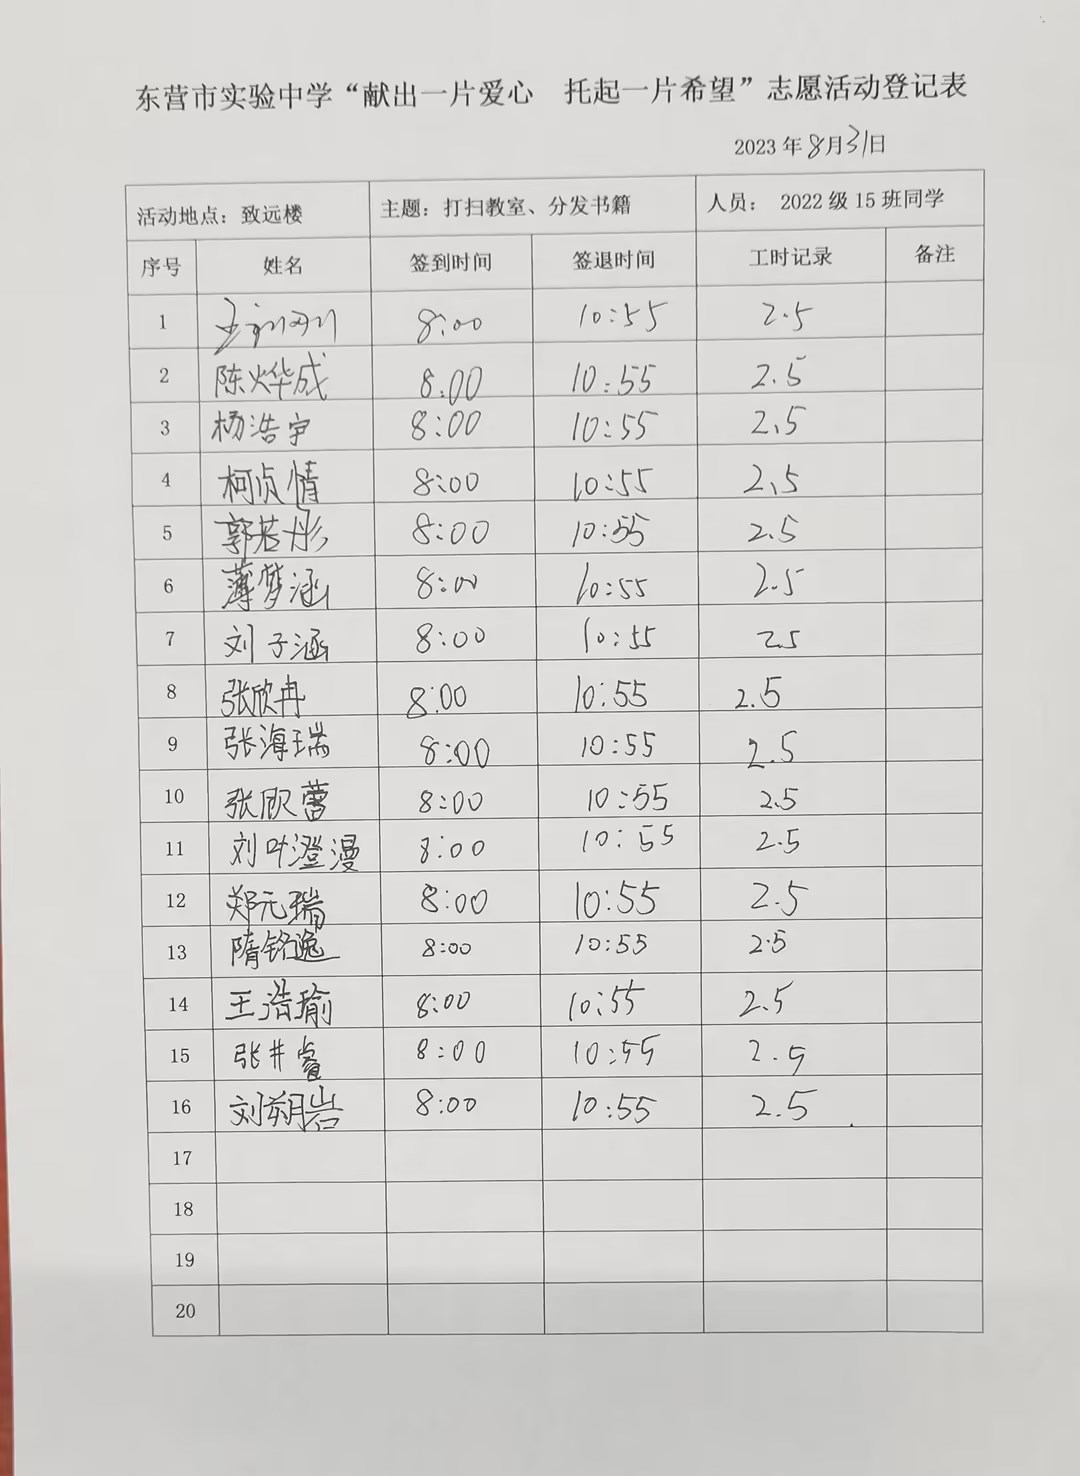 东营市实验中学“献出一片爱心 托起一片希望”志愿活动登记表
2023年8月31日
活动地点：致远楼 主题：打扫教室、分发书籍 人员： 2022级15班同学
序号 姓名 签到时间 签退时间 工时记录 备注
1 8:00 10:55 2.5
2 陈烨成 8:00 10:55 2.5
3 杨浩宇 8:00 10:55 2.5
4 柯贞情 8:00 10:55 2.5
5 郭若彤 8:00 10:55 2.5
6 薄梦涵 8:00 10:55 2.5
7 刘子涵 8:00 10:55 2.5
8 张欣冉 8:00 10:55 2.5
9 张海瑞 8:00 10:55 2.5
10 8:00 10:55 2.5
11 刘叶澄漫 8:00 10:55 2.5
12 郑元瑞 8:00 10:55 2.5
13 隋铭逸 8:00 10:55 2.5
14 王浩瑜 8:00 10:55 2.5
15 张井睿 8:00 10:55 2.5
16 刘朔岩 8:00 10:55 2.5
17
18
19
20